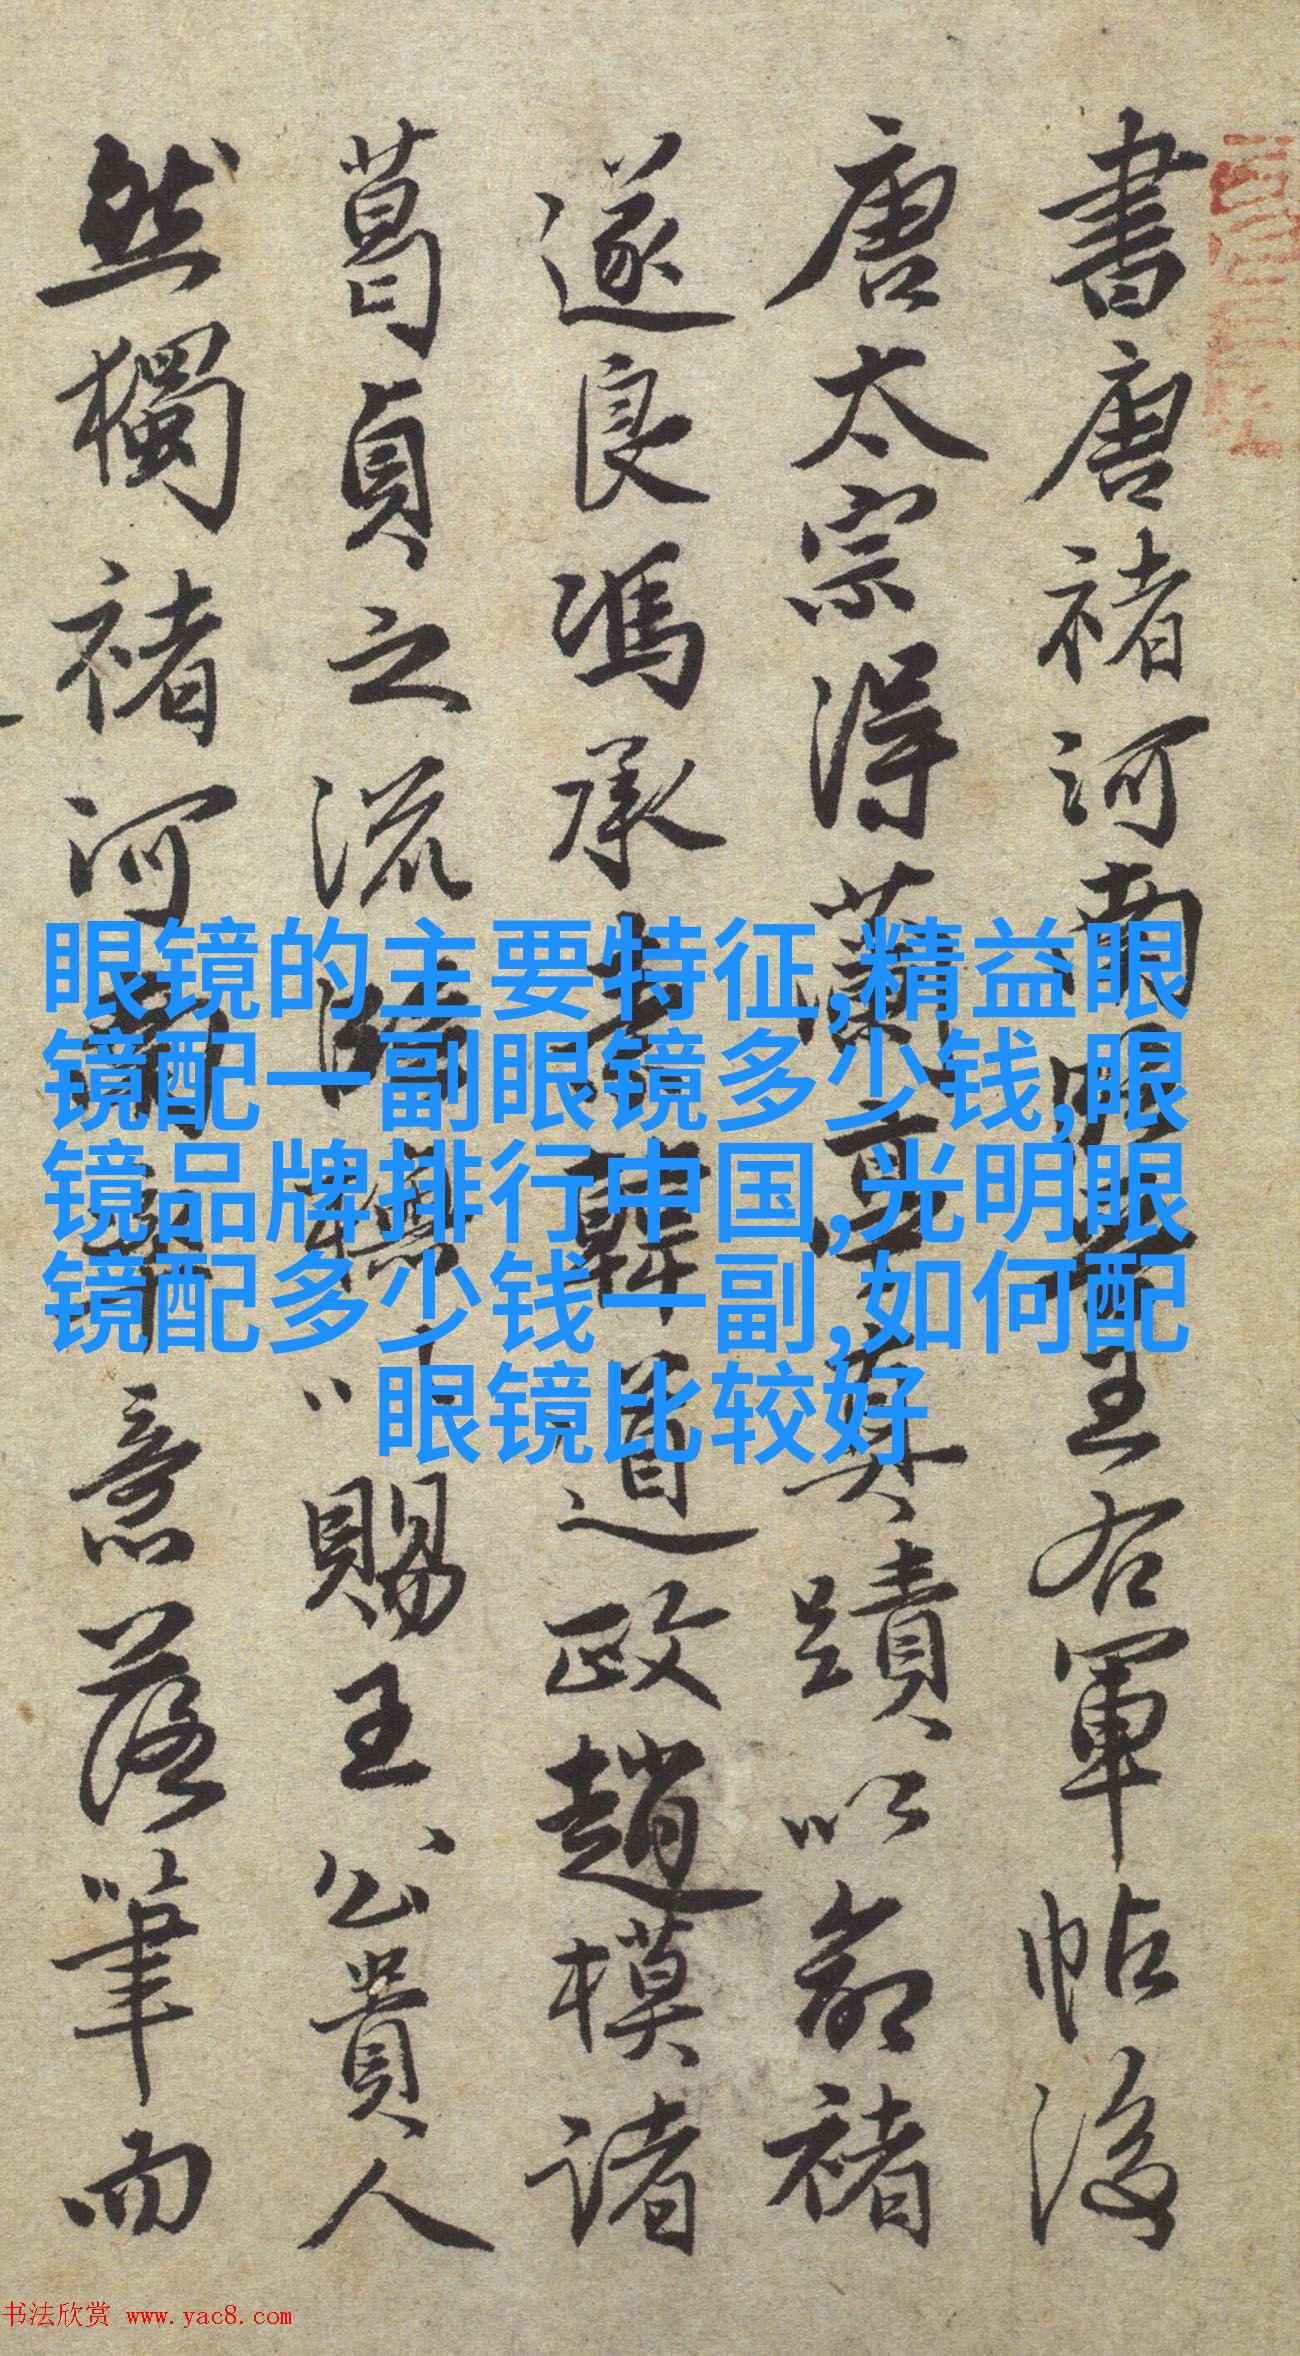 書唐褚河南王右軍帖後
唐太宗得蘭亭真蹟以命褚
遂良馮承素韓道政趙模諸
葛貞之流臨模以賜王公貴人
然獨褚河南意落筆而
眼镜的主要特征,精益眼
镜配一副眼镜多少钱,眼
镜品牌排行中国,光明眼
镜配多少钱一副,如何配
眼镜比较好
书法欣赏 www.yac8.com